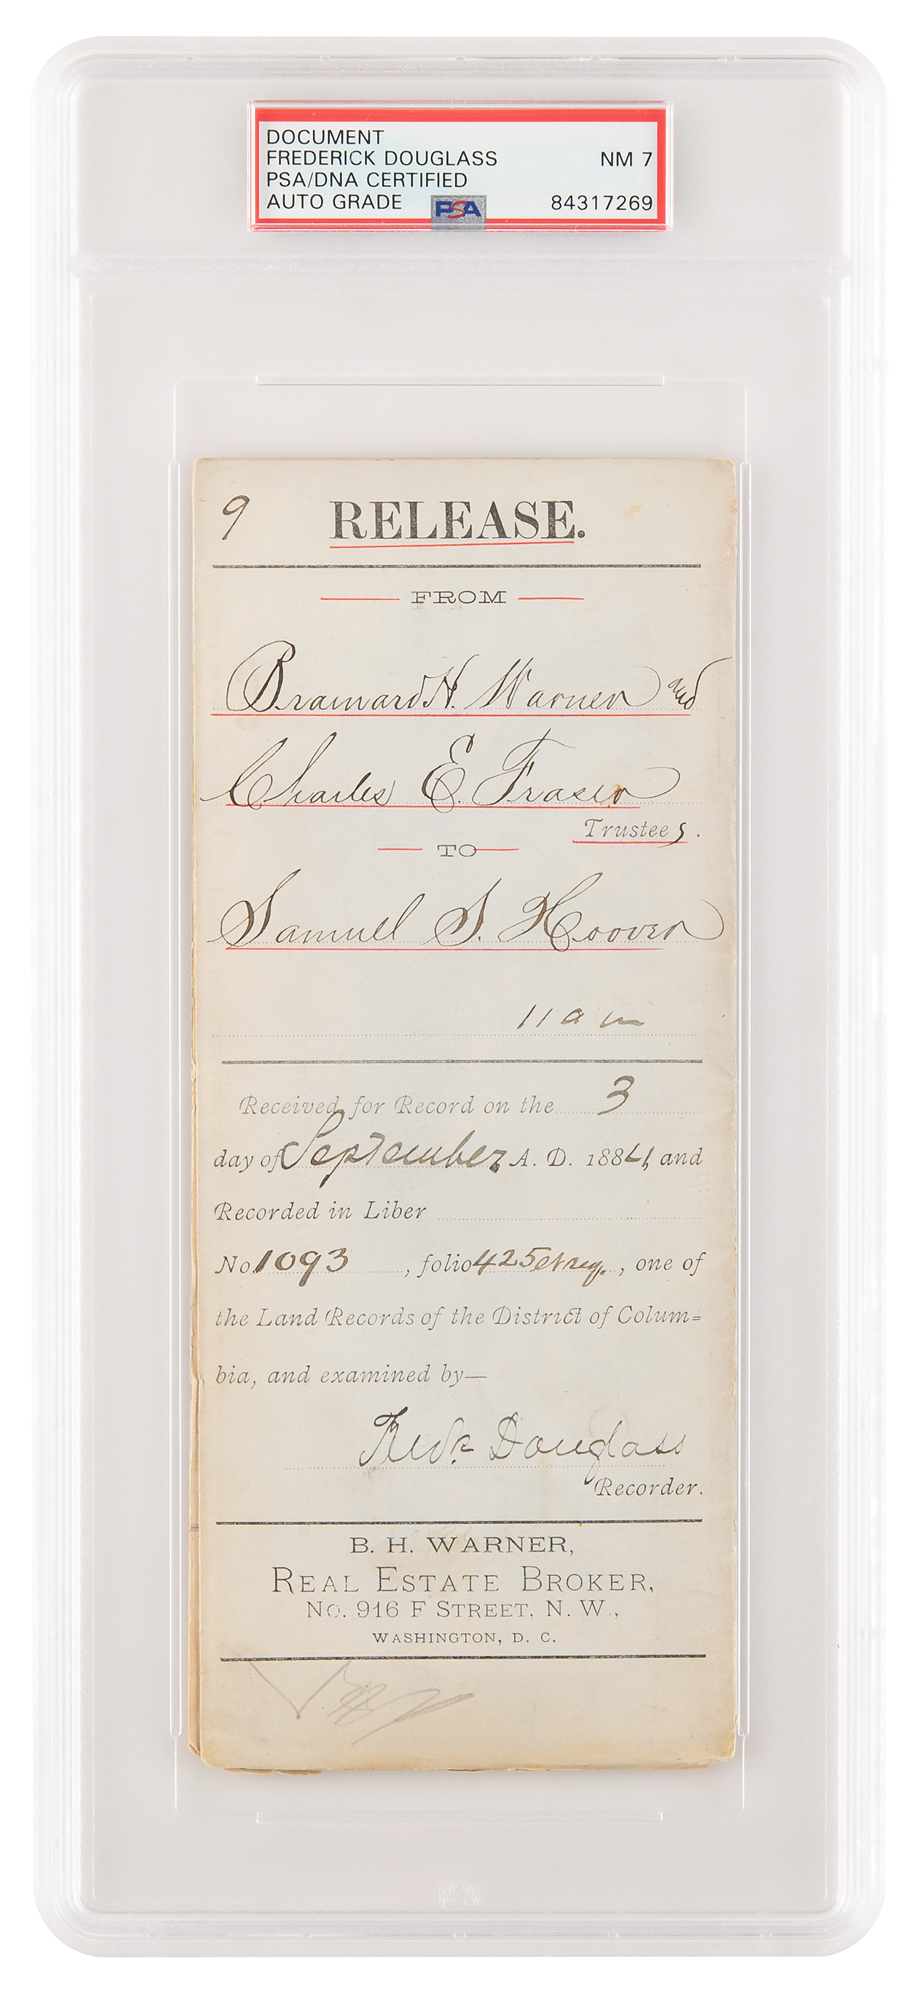 DOCUMENT
FREDERICK DOUGLASS NM 7
PSA/DNA CERTIFIED
AUTO GRADE PSA 84317269
9 RELEASE.
FROM
Brainard H. Warner and
Charles E. Fraser
Trustees.
TO
Samuel S. Hoover
11 a m
Received for Record on the 3
day of September A. D. 1884, and
Recorded in Liber
No. 1093, folio 425 et seq., one of
the Land Records of the District of Colum=
bia, and examined by—
Fredk Douglass
Recorder.
B. H. WARNER,
REAL ESTATE BROKER,
NO. 916 F STREET, N. W.,
WASHINGTON, D. C.